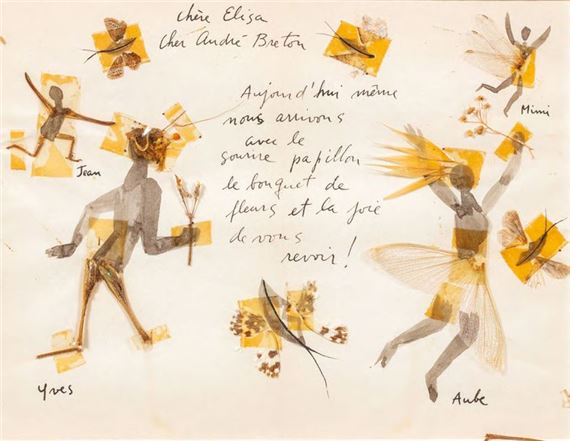 chère Elisa
cher André Breton
Aujourd'hui même
nous arrivons
avec le
sourire papillon
le bouquet de
fleurs et la joie
de vous
revoir!
Mimi
Jean
Yves
Aube